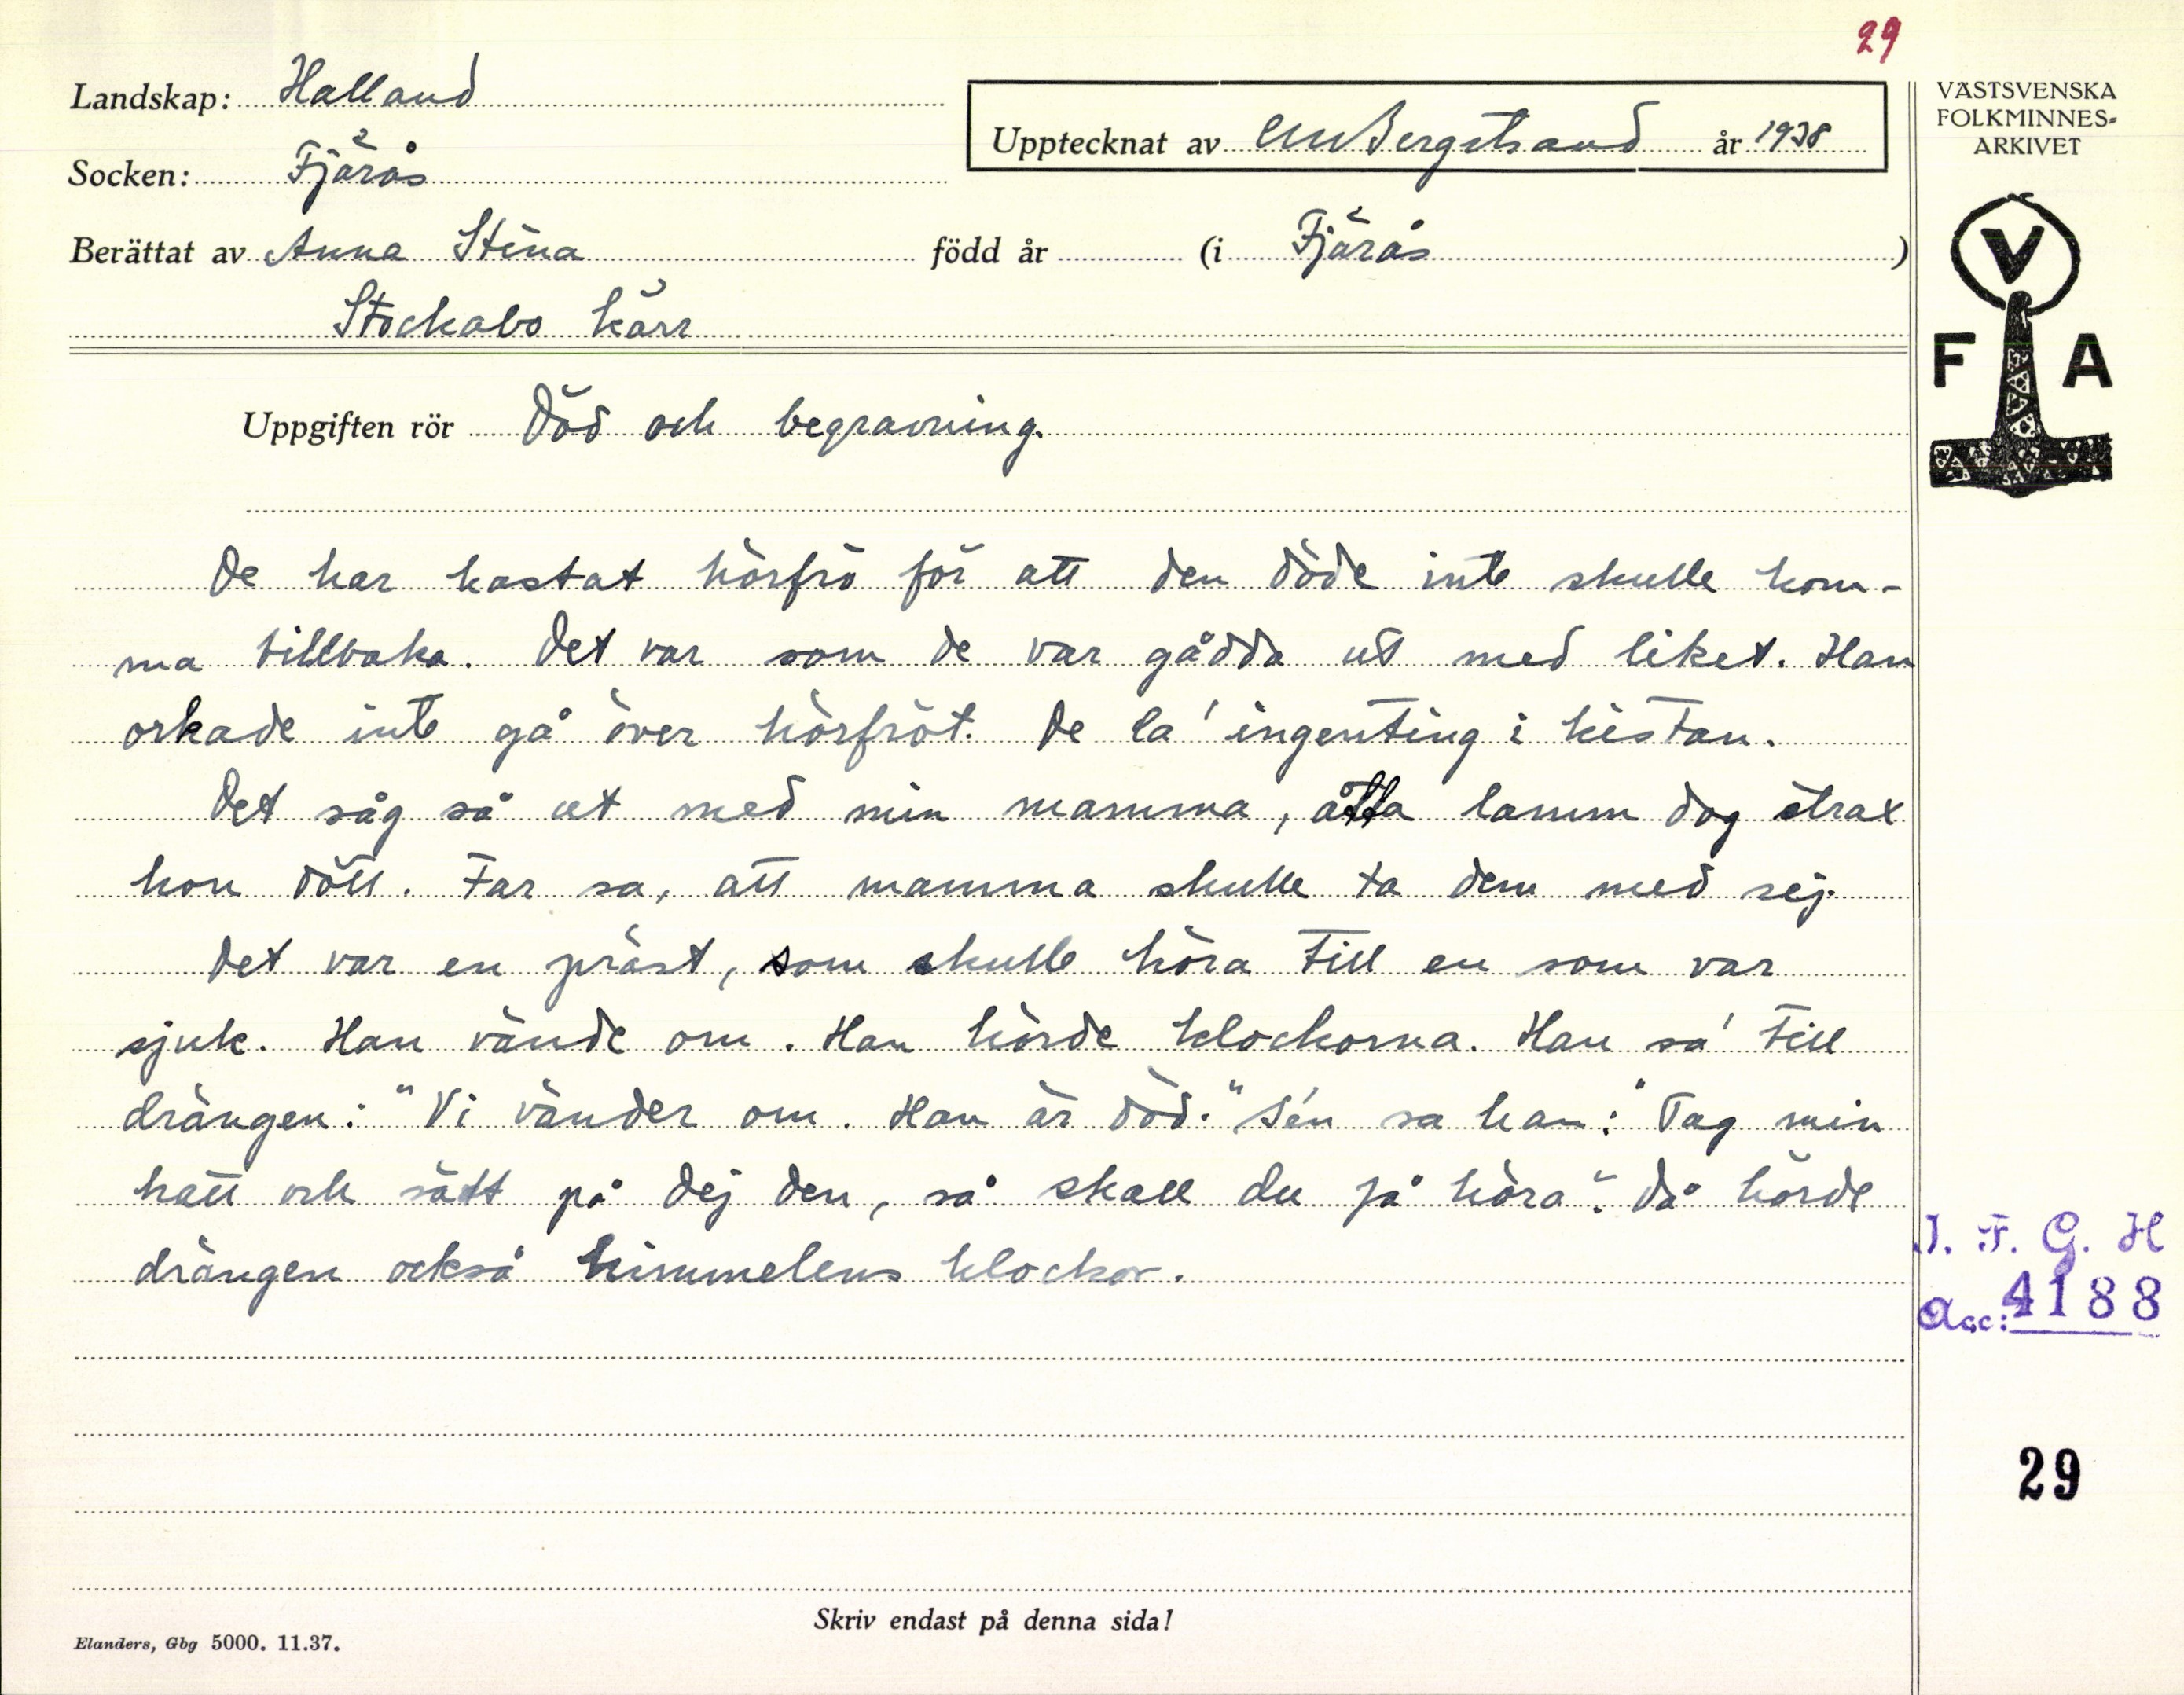 29
Landskap: Halland
VÄSTSVENSKA
FOLKMINNES-
ARKIVET
Upptecknat av CM Bergstrand år 1938
Socken: Fjärås
Berättat av Anna Stina född år (i Fjärås)
Stockabo kärr
V
F A
Uppgiften rör Död och begravning.
De har kastat hörfrö för att den döde inte skulle kom-
ma tillbaka. Det var som de var gådda ut med liket. Han
orkade inte gå över hörfröt. De la' ingenting i kistan.
Det såg så ut med min mamma, åtta lamm dog strax
hon dött. Far sa, att mamma skulle ta dem med sej.
Det var en präst, som skulle höra till en som var
sjuk. Han vände om. Han hörde klockorna. Han sa' till
drängen: "Vi vänder om. Han är död." Sén sa han: "Tag min
hatt och sätt på dej den, så skall du få höra". Då hörde
drängen också himmelens klockor.
I. F. G. H
Acc: 4188
29
Skriv endast på denna sida!
Elanders, Gbg 5000. 11.37.